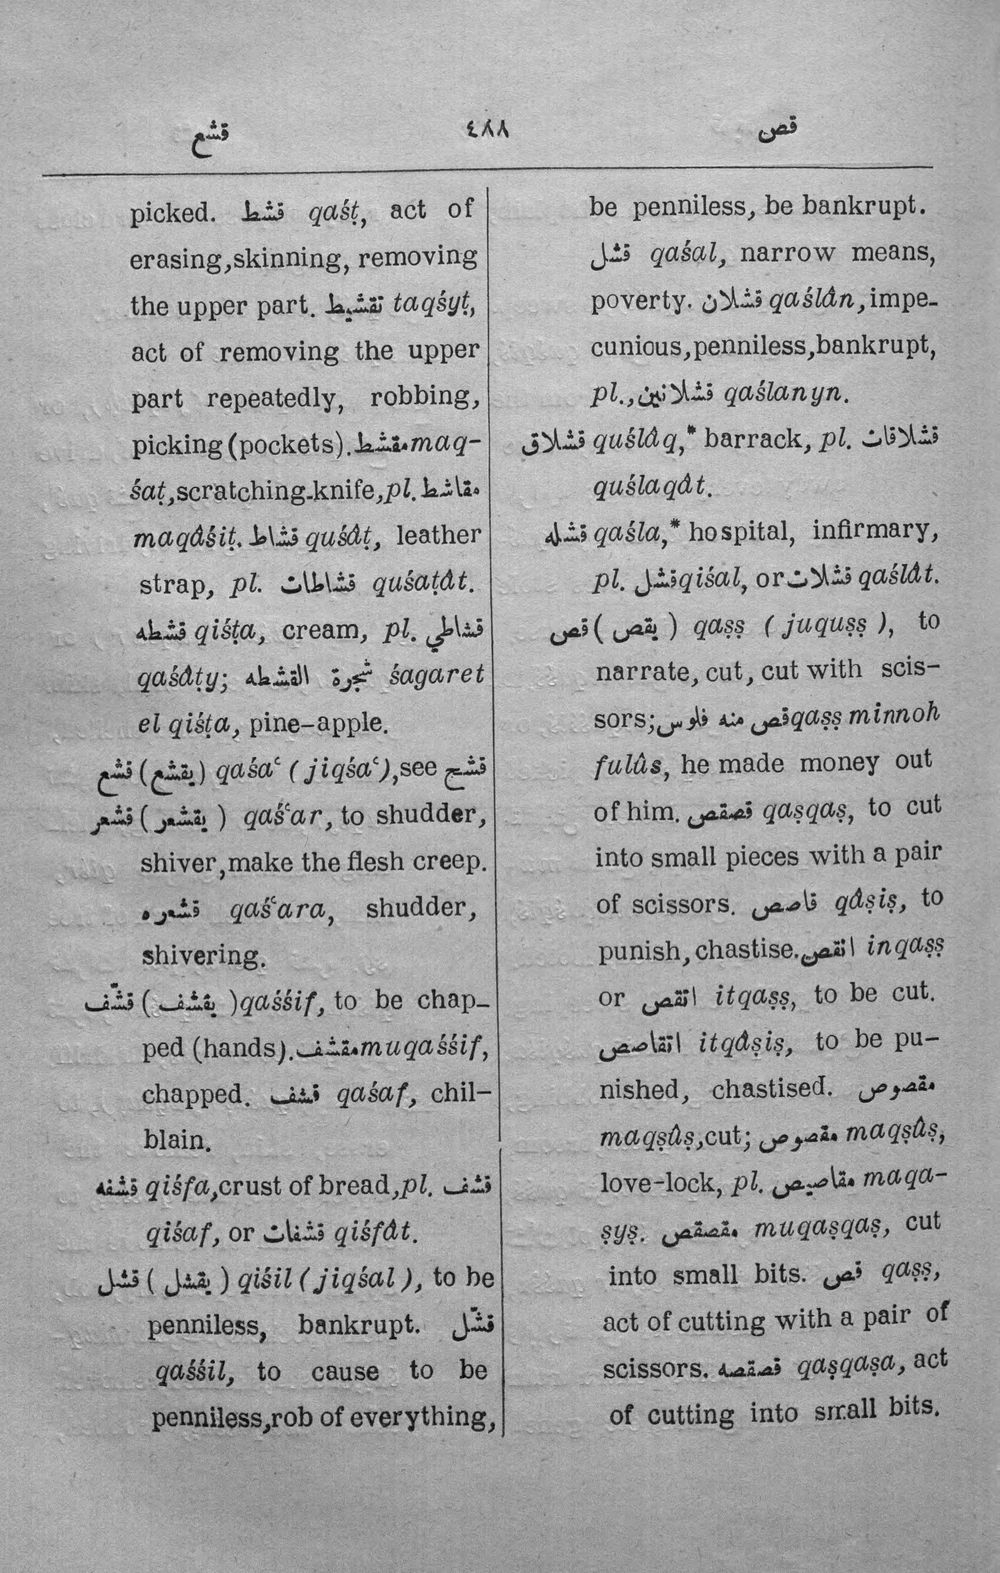 قشع ٤٨٨ قص
picked. قشط qaśṭ, act of
erasing, skinning, removing
the upper part. تقشيط taqśyṭ,
act of removing the upper
part repeatedly, robbing,
picking (pockets). مقشط maq-
śaṭ, scratching-knife, pl. مقاشط
maqâśiṭ. قشاط quśâṭ, leather
strap, pl. قشاطات quśaṭât.
قشطه qiśṭa, cream, pl. قشاطي
qaśâṭy; شجرة القشطه śagaret
el qiśṭa, pine-apple.
قشع (يقشع) qaśaʿ (jiqśaʿ), see قشح
قشعر (يقشعر) qaśʿar, to shudder,
shiver, make the flesh creep.
قشعره qaśʿara, shudder,
shivering.
قشّف (يقشف) qaśśif, to be chap-
ped (hands). مقشف muqaśśif,
chapped. قشف qaśaf, chil-
blain.
قشفه qiśfa, crust of bread, pl. قشف
qiśaf, or قشفات qiśfât.
قشل (يقشل) qiśil (jiqśal), to be
penniless, bankrupt. قشّل
qaśśil, to cause to be
penniless, rob of everything,
be penniless, be bankrupt.
قشل qaśal, narrow means,
poverty. قشلان qaślân, impe-
cunious, penniless, bankrupt,
pl., قشلانين qaślanyn.
قشلاق quślâq,* barrack, pl. قشلاقات
quślaqât.
قشله qaśla,* hospital, infirmary,
pl. قشل qiśal, or قشلات qaślât.
قص (يقص) qaṣṣ (juquṣṣ), to
narrate, cut, cut with scis-
sors; قص منه فلوس qaṣṣ minnoh
fulûs, he made money out
of him. قصقص qaṣqaṣ, to cut
into small pieces with a pair
of scissors. قاصص qâṣiṣ, to
punish, chastise. انقص inqaṣṣ
or اتقص itqaṣṣ, to be cut.
اتقاصص itqâṣiṣ, to be pu-
nished, chastised. مقصوص
maqṣûṣ, cut; مقصوص maqṣûṣ,
love-lock, pl. مقاصيص maqa-
ṣyṣ. مقصقص muqaṣqaṣ, cut
into small bits. قص qaṣṣ,
act of cutting with a pair of
scissors. قصقصه qaṣqaṣa, act
of cutting into small bits.